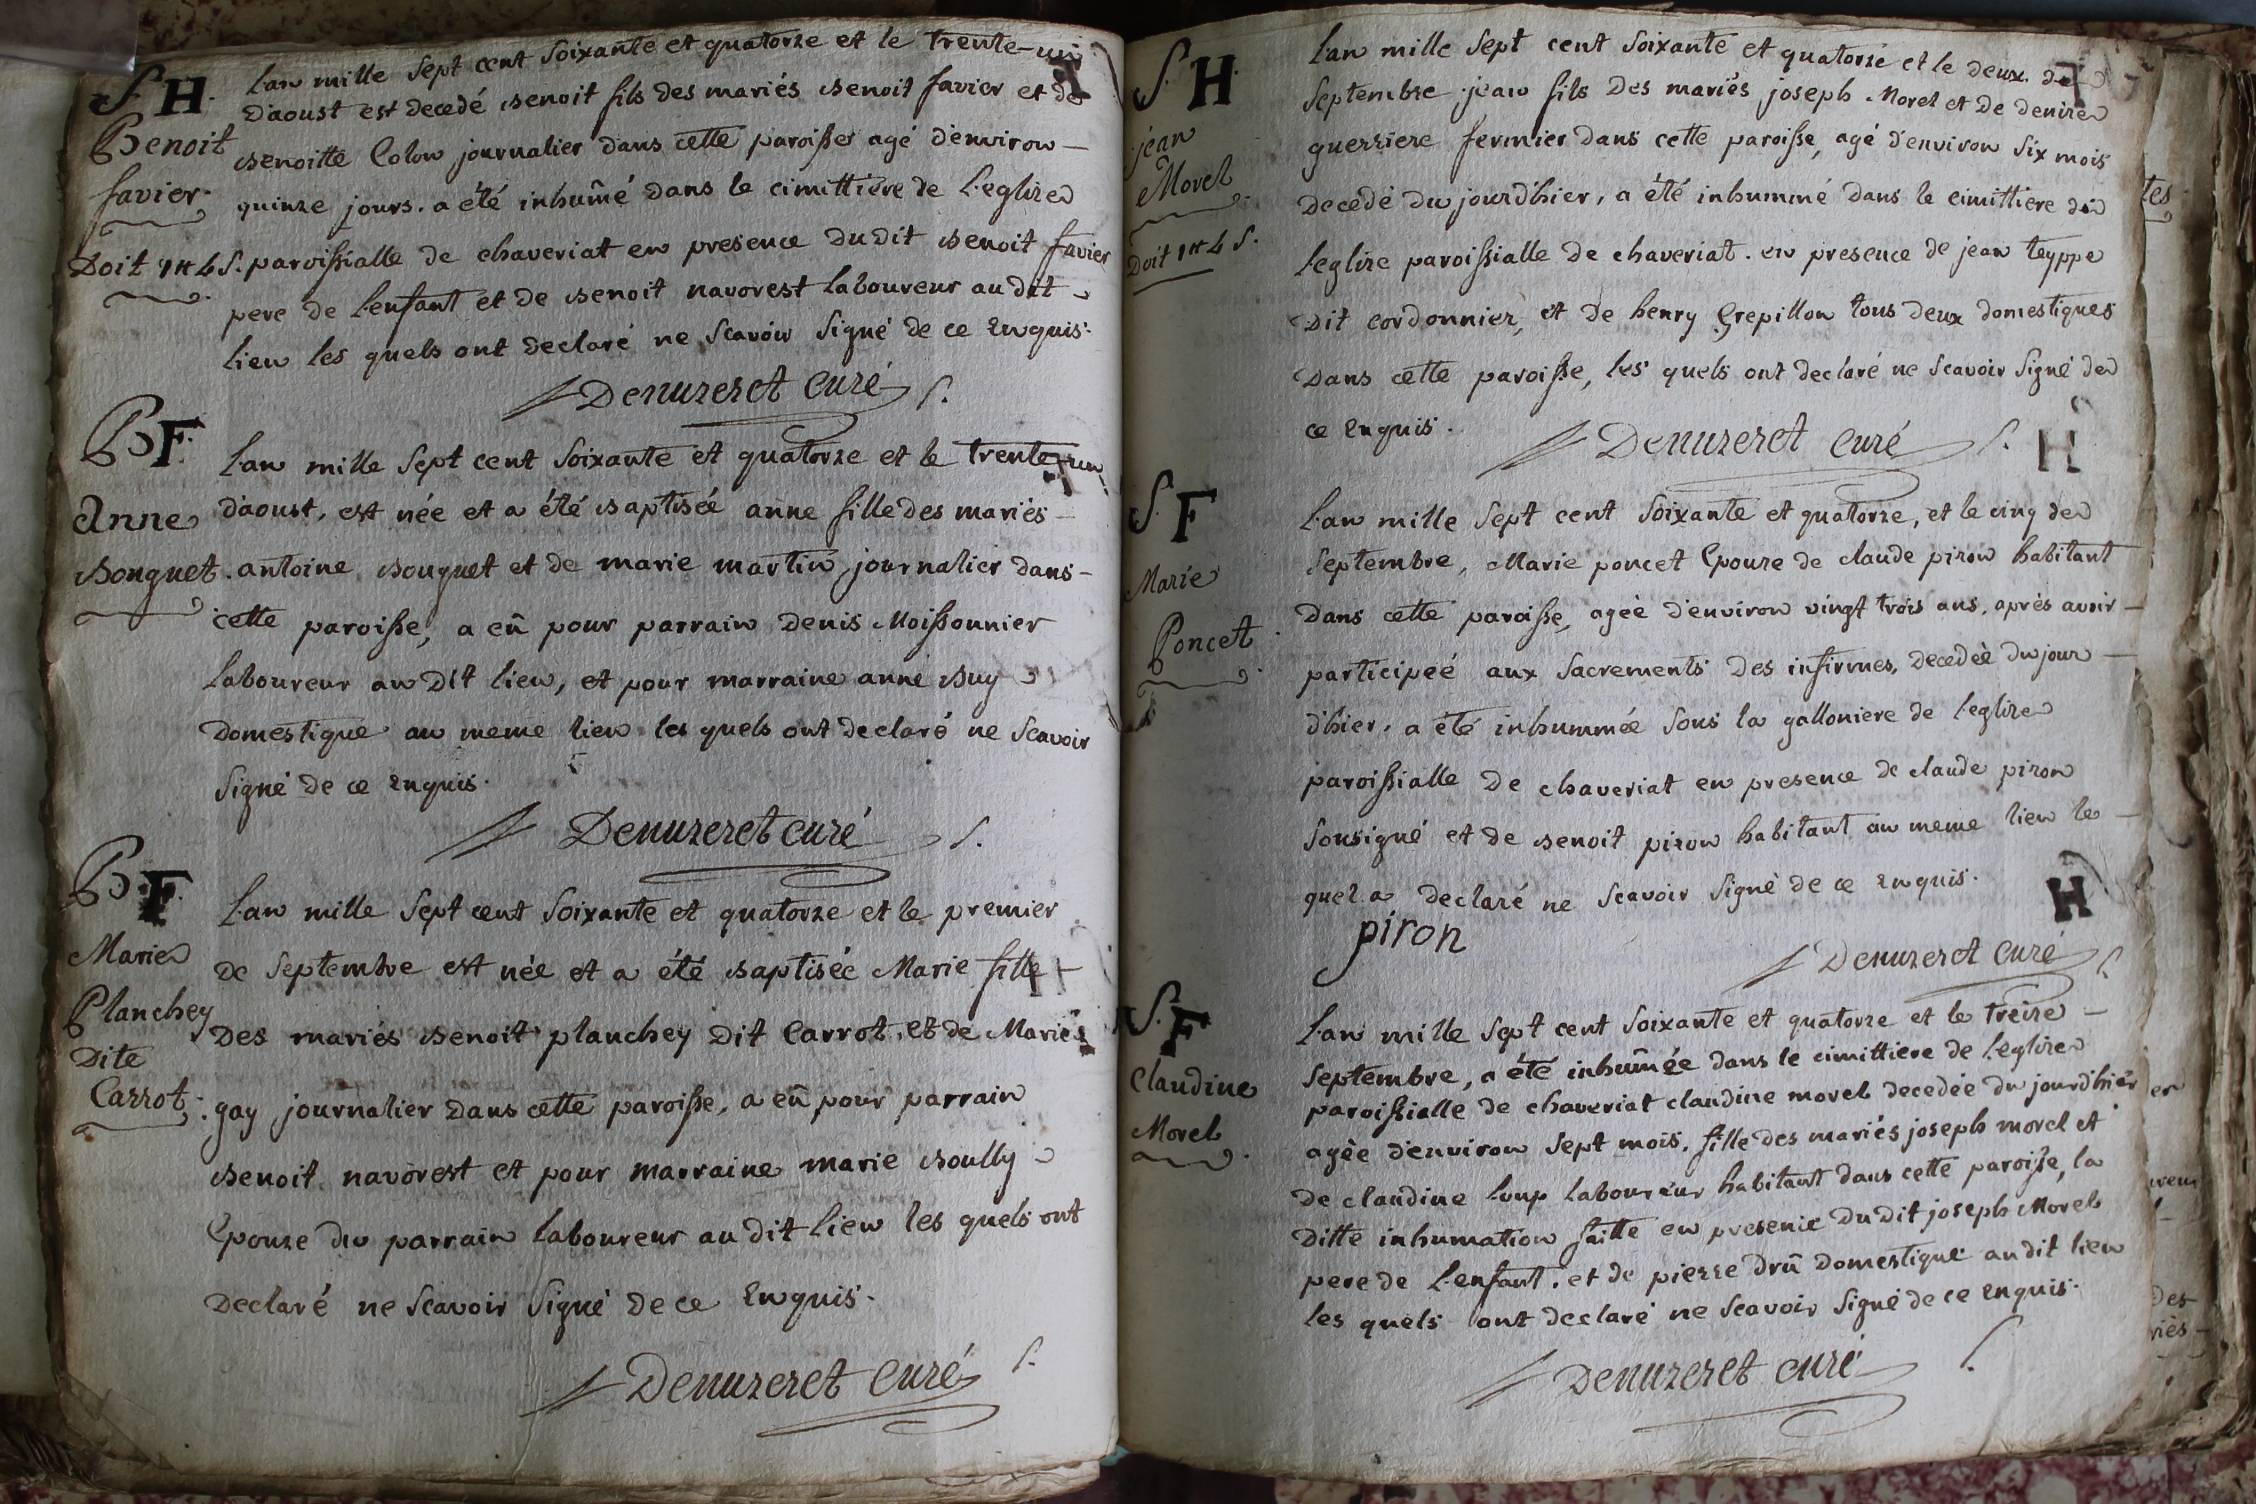 S. H.
Benoit
favier.
Doit 1# 4 S.
L'an mille Sept cent Soixante et quatorze et le trente-un
D'aoust est decedé Benoit fils des mariés Benoit favier et de
Benoitte Colon journalier dans cette paroisse agé d'environ
quinze jours. a été inhumé dans le cimittiere de L'eglize
paroissialle de chaveriat en presence du dit Benoit favier
pere de L'enfant et de Benoit navorest Laboureur au dit
lieu les quels ont declaré ne Scavoir Signé de ce Enquis.
Denuzeret Curé
B F.
Anne
Bouquet.
L'an mille Sept cent Soixante et quatorze et le trente-un
D'aoust, est née et a été Baptisée anne fille des mariés
antoine Bouquet et de marie martin journalier dans
cette paroisse, a eu pour parrain Denis Moissonnier
Laboureur au Dit lieu, et pour marraine anne Buy
Domestique au meme lieu les quels ont declaré ne Scavoir
Signé de ce Enquis.
Denuzeret Curé
B F.
Marie
Planchey
Dite
Carrot
L'an mille Sept cent Soixante et quatorze et le premier
de Septembre est née et a été Baptisée Marie fille
Des mariés Benoit planchey Dit Carrot, et de Marie
gay journalier Dans cette paroisse, a eu pour parrain
Benoit navorest et pour marraine marie Boully
Epouze du parrain Laboureur au dit lieu les quels ont
Declaré ne Scavoir Signé de ce Enquis.
Denuzeret Curé
S. H.
jean
Morel
Doit 1# 4 S.
L'an mille Sept cent Soixante et quatorze et le deux de
Septembre jean fils Des mariés joseph Morel et de denize
guerriere fermier dans cette paroisse, agé d'environ Six mois
Decedé du jourd'hier, a été inhummé dans le cimittiere de
L'eglize paroissialle de chaveriat. en presence de jean teyppe
Dit cordonnier, et de henry Grepillon tous deux domestiques
Dans cette paroisse, les quels ont declaré ne Scavoir Signé de
ce Enquis.
Denuzeret Curé
H
S. F
Marie
Poncet
L'an mille Sept cent Soixante et quatorze, et le cinq de
Septembre, Marie poncet Epouze de claude piron habitant
Dans cette paroisse, agée d'environ vingt trois ans, aprés avoir
participeé aux Sacrements Des infirmes, Decedeé du jour
d'hier, a été inhummée Sous la galloniere de L'eglize
paroissialle De chaveriat en presence de claude piron
Sousigné et de Benoit piron habitant au meme lieu le
quel a Declaré ne Scavoir Signé de ce Enquis.
piron
H
Denuzeret Curé
S. F
Claudine
Morel
L'an mille Sept cent Soixante et quatorze et le treize
Septembre, a été inhumée dans le cimittiere de L'eglize
paroissialle de chaveriat claudine morel decedée du jourd'hier
agée d'environ Sept mois, fille des mariés joseph morel et
de claudine Loup Laboureur habitant dans cette paroisse, la
Ditte inhumation faitte en presence Du dit joseph Morel
pere de L'enfant. et de pierre Dru Domestique au dit lieu
les quels ont declaré ne Scavoir Signé de ce Enquis.
Denuzeret curé